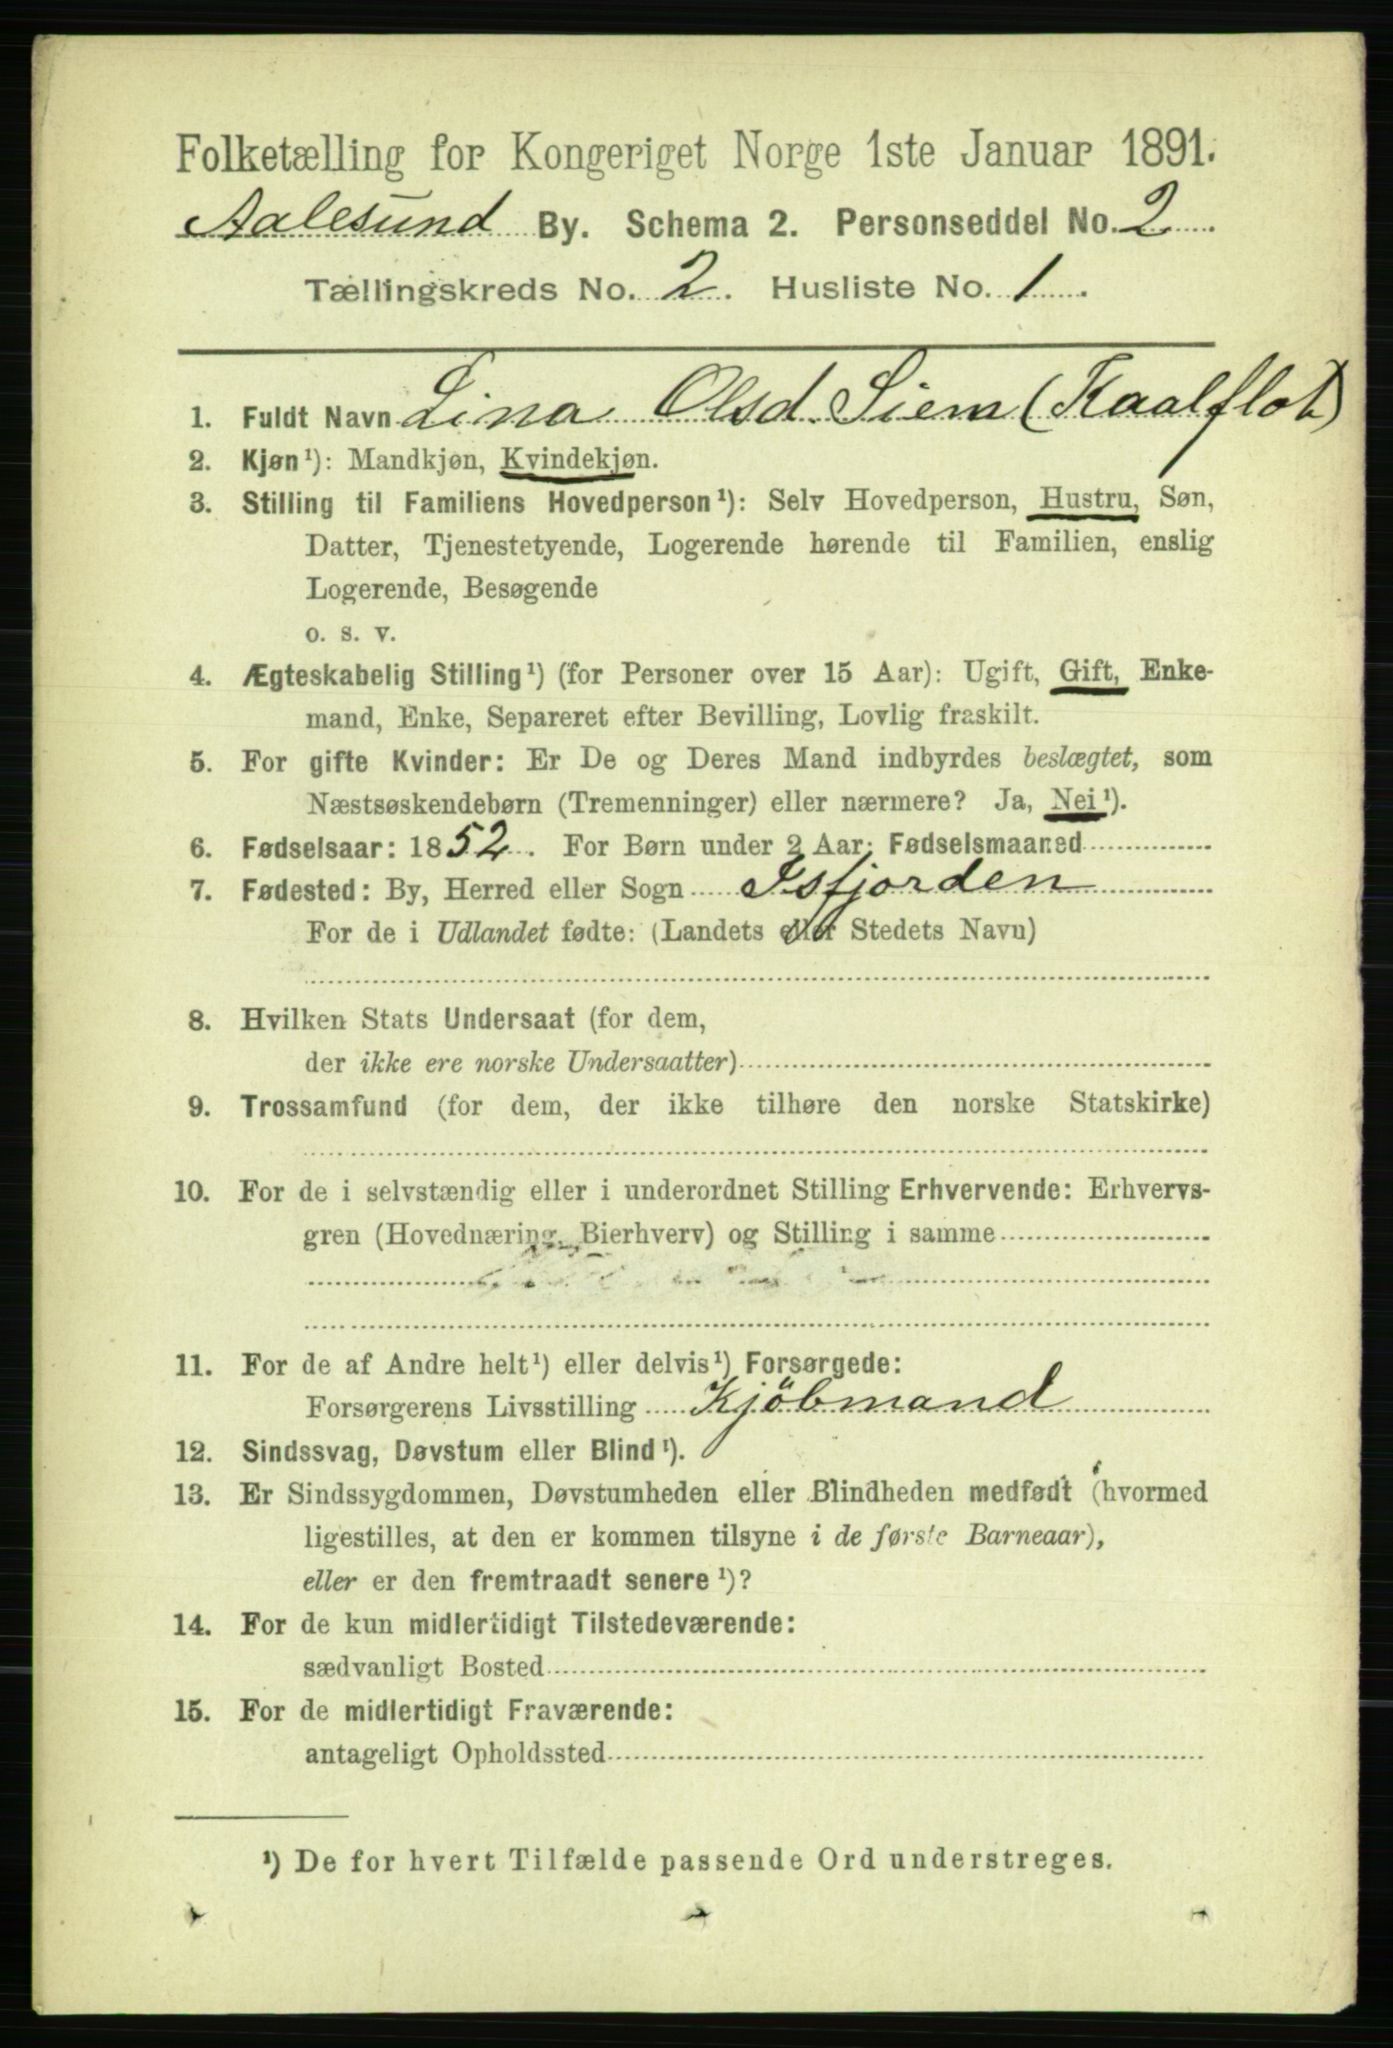 Folketælling for Kongeriget Norge 1ste Januar 1891.
Aalesund By. Schema 2. Personseddel No. 2
Tællingskreds No. 2. Husliste No. 1
1. Fuldt Navn Lina Olsd. Siem (Kaalflot)
2. Kjøn¹): Mandkjøn, Kvindekjøn.
3. Stilling til Familiens Hovedperson¹): Selv Hovedperson, Hustru, Søn,
Datter, Tjenestetyende, Logerende hørende til Familien, enslig
Logerende, Besøgende
o. s. v.
4. Ægteskabelig Stilling¹) (for Personer over 15 Aar): Ugift, Gift, Enke-
mand, Enke, Separeret efter Bevilling, Lovlig fraskilt.
5. For gifte Kvinder: Er De og Deres Mand indbyrdes beslægtet, som
Næstsøskendebørn (Tremenninger) eller nærmere? Ja, Nei¹).
6. Fødselsaar: 1852. For Børn under 2 Aar: Fødselsmaaned
7. Fødested: By, Herred eller Sogn Isfjorden
For de i Udlandet fødte: (Landets eller Stedets Navn)
8. Hvilken Stats Undersaat (for dem,
der ikke ere norske Undersaatter)
9. Trossamfund (for dem, der ikke tilhøre den norske Statskirke)
10. For de i selvstændig eller i underordnet Stilling Erhvervende: Erhvervs-
gren (Hovednæring, Bierhverv) og Stilling i samme
11. For de af Andre helt¹) eller delvis¹) Forsørgede:
Forsørgerens Livsstilling Kjöbmand
12. Sindssvag, Døvstum eller Blind¹).
13. Er Sindssygdommen, Døvstumheden eller Blindheden medfødt (hvormed
ligestilles, at den er kommen tilsyne i de første Barneaar),
eller er den fremtraadt senere¹)?
14. For de kun midlertidigt Tilstedeværende:
sædvanligt Bosted
15. For de midlertidigt Fraværende:
antageligt Opholdssted
¹) De for hvert Tilfælde passende Ord understreges.